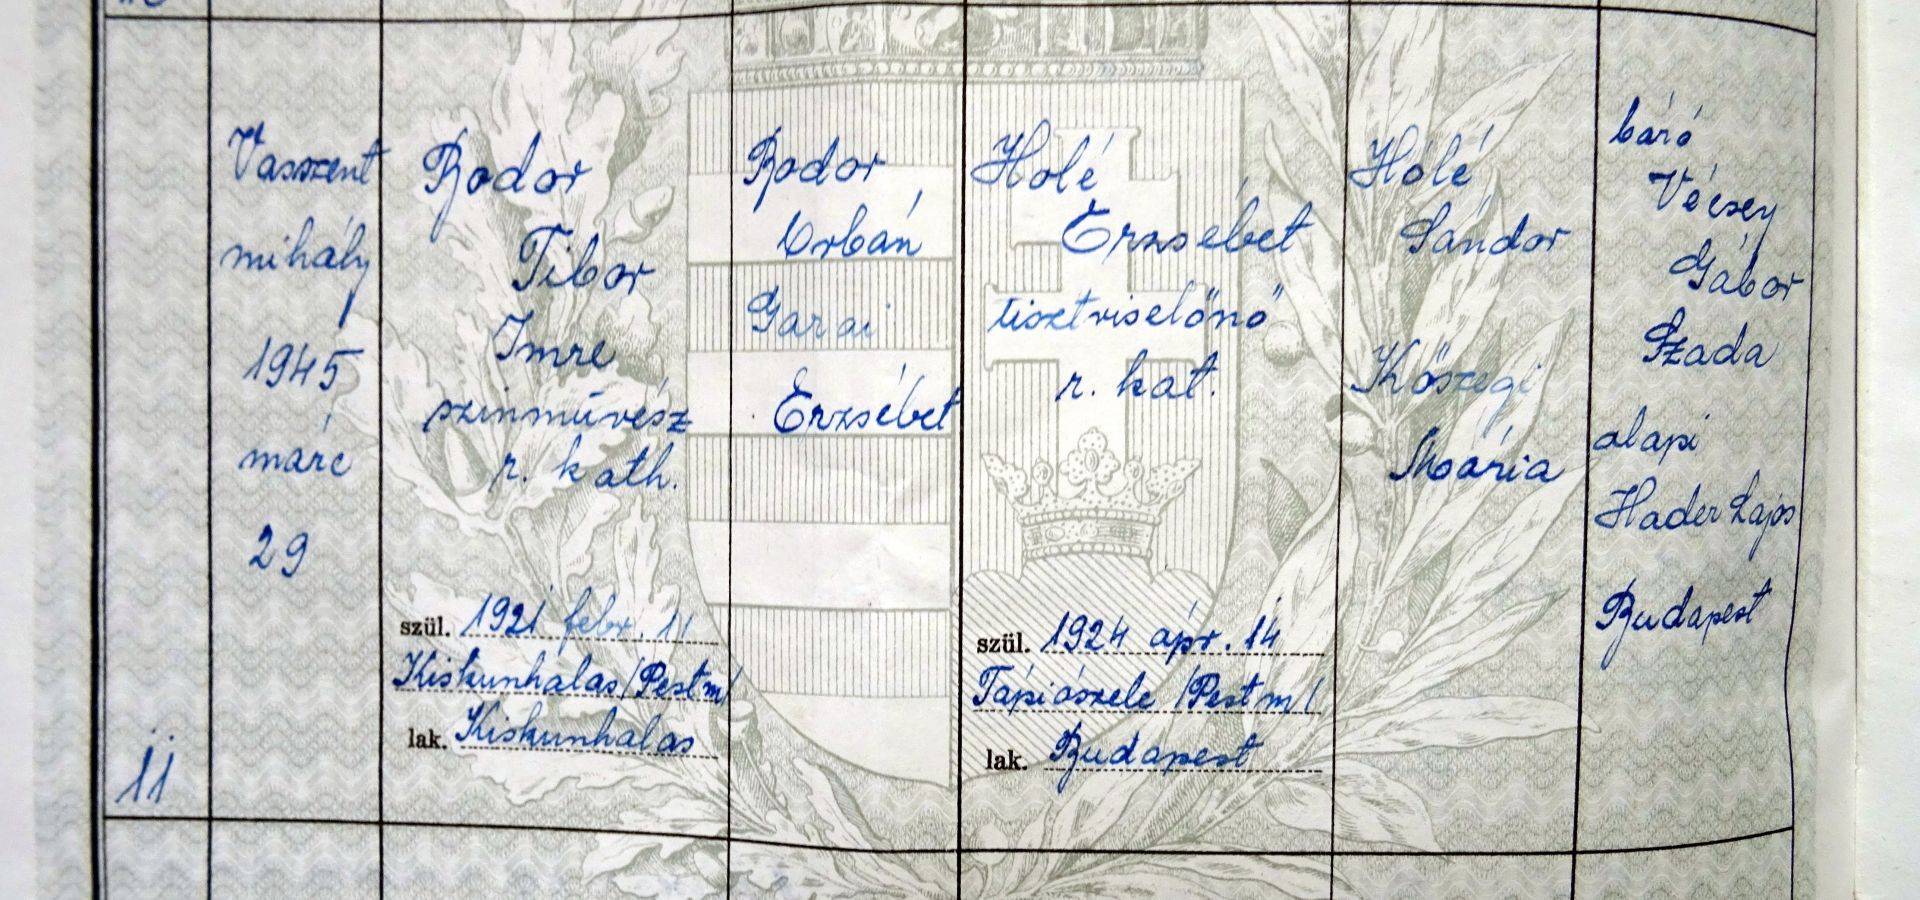 11
Vasszent
mihály
1945
márc
29
Bodor
Tibor
Imre
szinművész
r. kath.
szül. 1921 febr. 11
Kiskunhalas /Pestm/
lak. Kiskunhalas
Bodor
Orbán
Garai
Erzsébet
Holé
Erzsébet
tisztviselőnő
r. kat.
szül. 1924 ápr. 14
Tápiószele /Pestm/
lak. Budapest
Hólé
Sándor
Kőszegi
Mária
báró
Vécsey
Gábor
Szada
alapi
Hader Lajos
Budapest